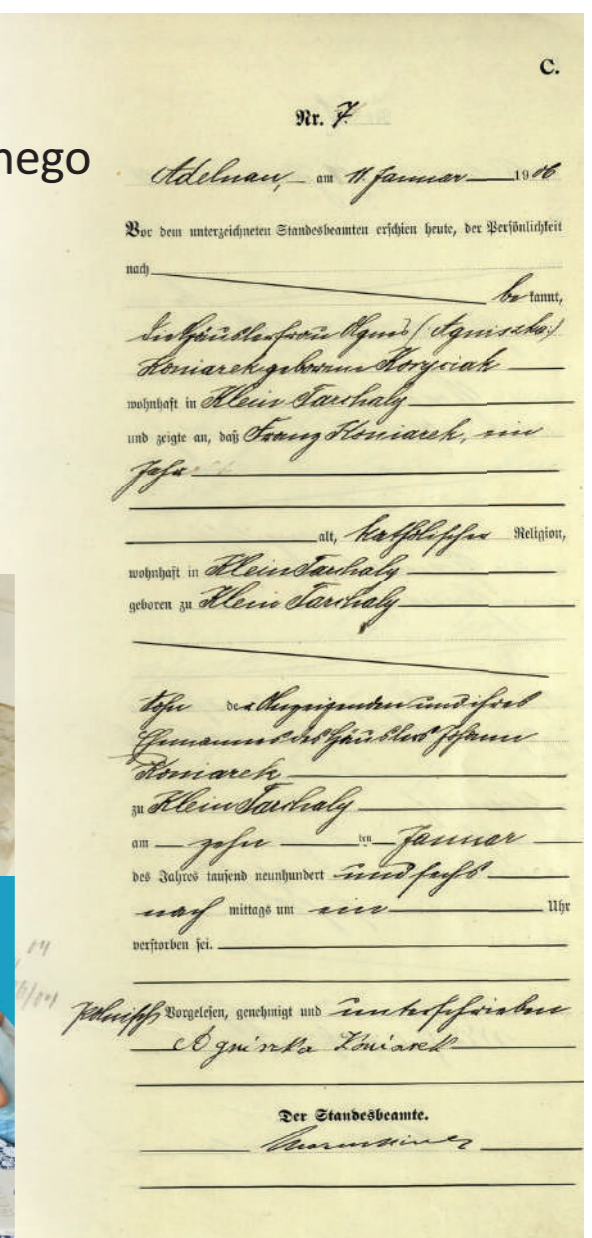 C.
Nr. 7.
nego
Adelnau, am 11. Januar 1906
Vor dem unterzeichneten Standesbeamten erschien heute, der Persönlichkeit
nach
be kannt,
die Häuslerfrau Agnes (Agniszka)
Koniarek geborene Koryciak
wohnhaft in Klein Tarchaly
und zeigte an, daß Franz Koniarek, ein
Jahr
alt, katholischer Religion,
wohnhaft in Klein Tarchaly
geboren zu Klein Tarchaly
Sohn der Anzeigenden und ihres
Ehmannes des Häuslers Johann
Koniarek
zu Klein Tarchaly
am zehn ten Januar
des Jahres tausend neunhundert und sechs
nach mittags um ein Uhr
verstorben sei.
polnisch Vorgelesen, genehmigt und unterschrieben
Agniszka Koniarek
Der Standesbeamte.